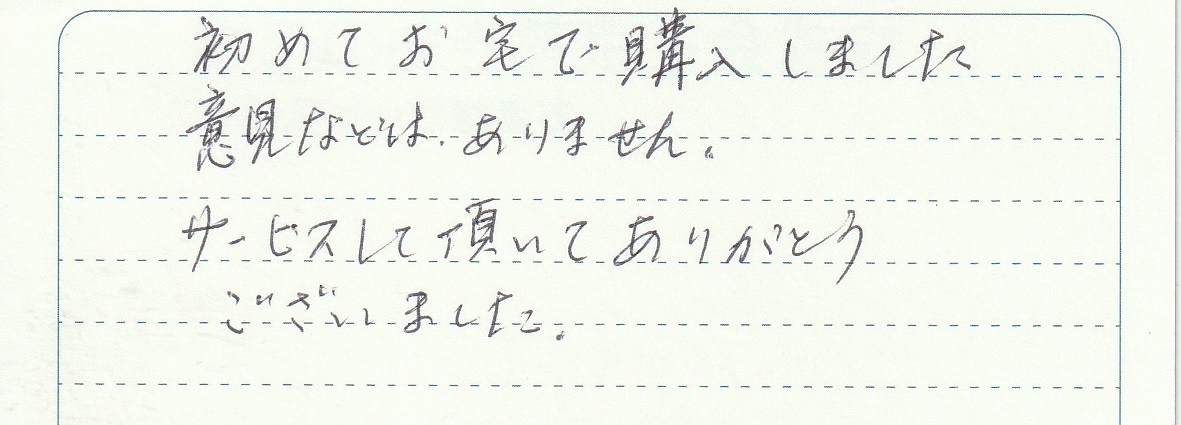 初めてお宅で購入しました
意見などは、ありません。
サービスして頂いてありがとう
ございました。